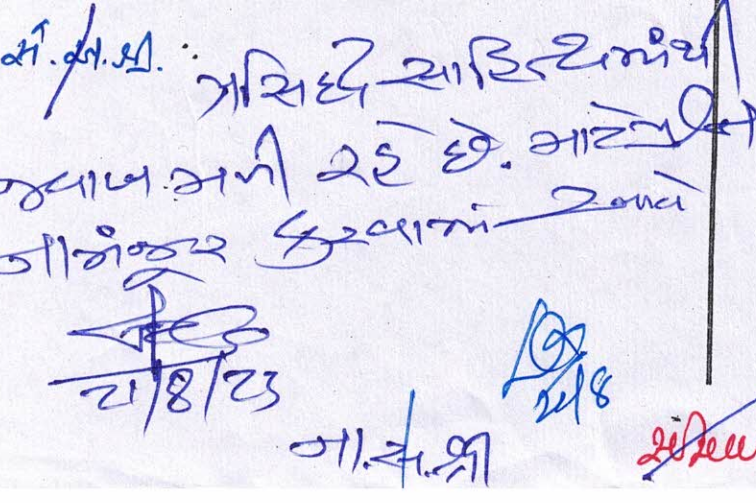 સં.અ.શ્રી. : પ્રસિદ્ધ સાહિત્યમાંથી
જવાબ મળી રહે છે. માટે
નામંજૂર કરવામાં આવે
૨૧/૮/૨૩
ના.સ.શ્રી